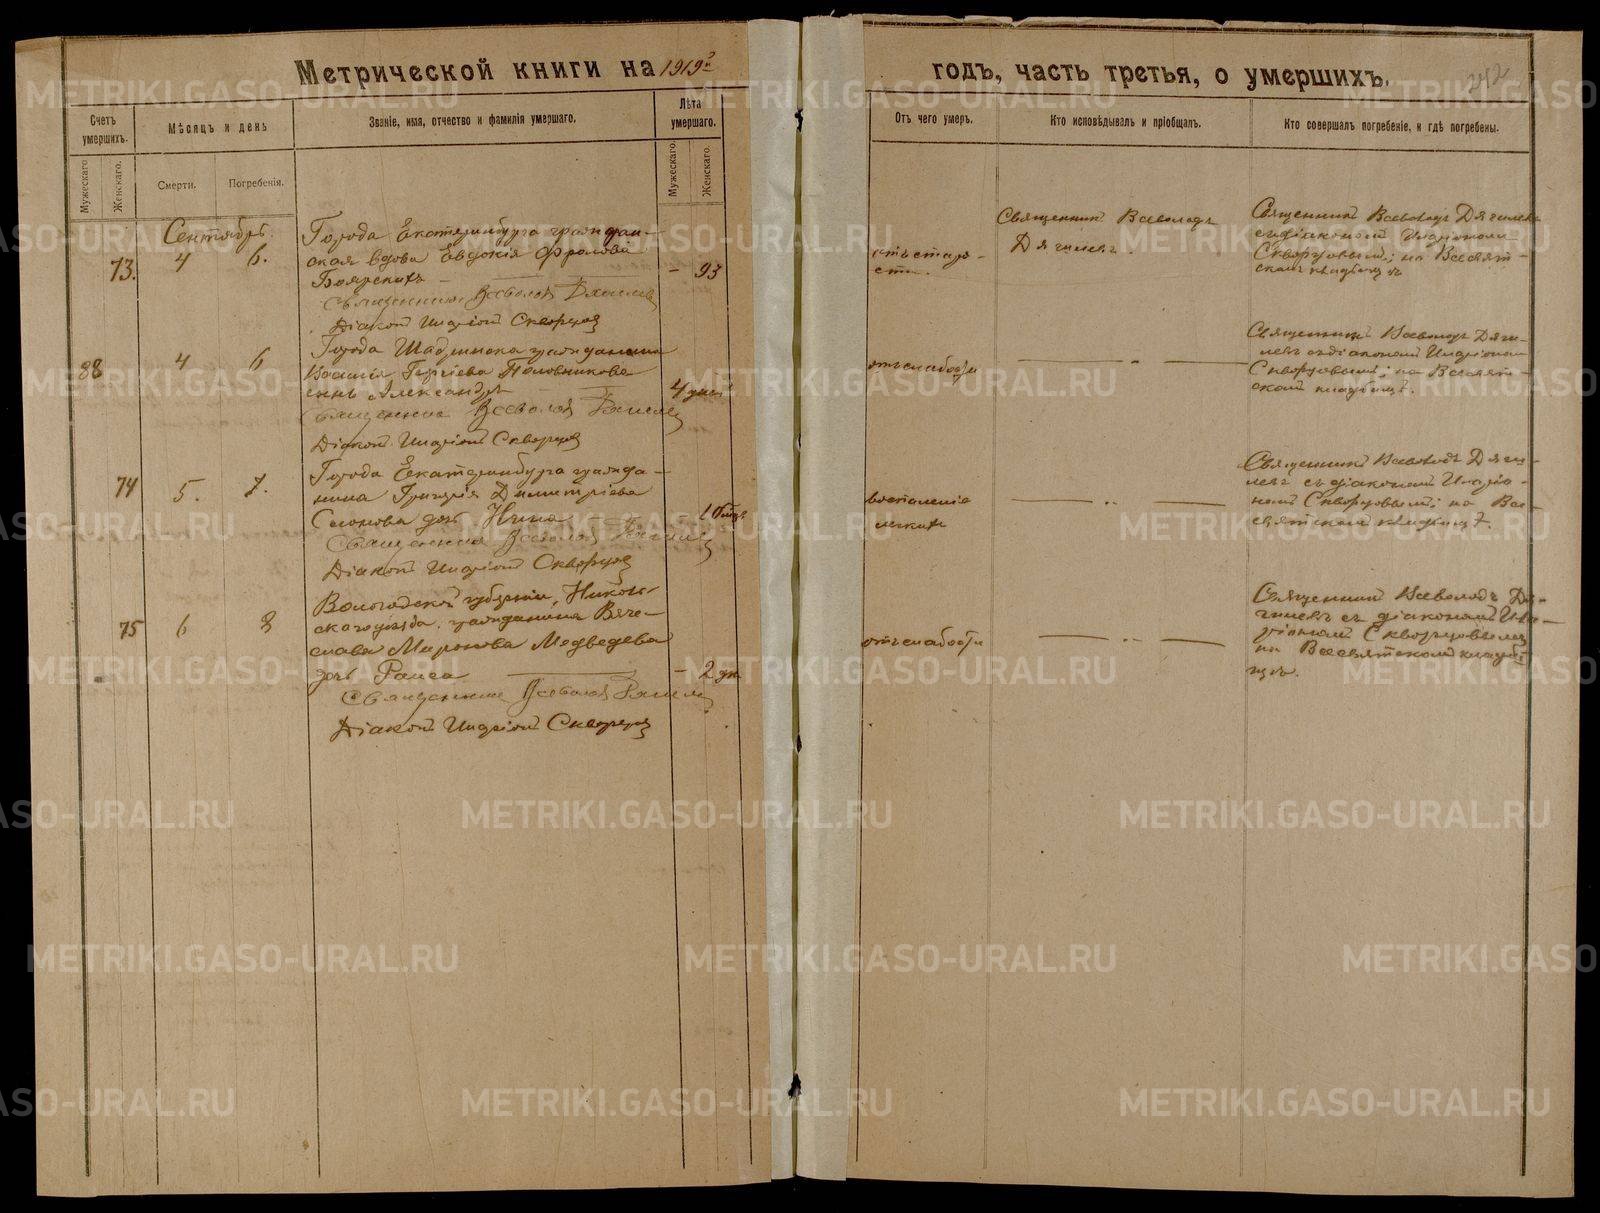 Метрической книги на 1919 г
годъ, часть третья, о умершихъ.
242
Счетъ умершихъ.
Мѣсяцъ и день
Званіе, имя, отчество и фамилія умершаго.
Лѣта умершаго.
Отъ чего умеръ.
Кто исповѣдывалъ и пріобщалъ.
Кто совершалъ погребеніе, и гдѣ погребены.
Мужескаго
Женскаго.
Смерти.
Погребенія.
Мужескаго.
Женскаго.
Сентябрь.
73.
4
6.
Города Екатеринбурга граждан-
ская вдова Евдокія Фролова
Боярскихъ —
Священникъ Всеволодъ Дягилевъ
Діаконъ Иларіонъ Скворцовъ
— 93
отъ старо-
сти.
Священникъ Всеволодъ
Дягилевъ.
Священникъ Всеволодъ Дягилевъ
съ діакономъ Иларіономъ
Скворцовымъ; на Всесвят-
скомъ кладбищѣ
88
4
6
Города Шадринска гражданина
Василія Георгіева Половникова
сынъ Александръ
Священникъ Всеволодъ Дягилевъ
Діаконъ Иларіонъ Скворцовъ
4 дней
отъ слабости
— „ —
Священникъ Всеволодъ Дяги-
левъ съ діакономъ Иларіономъ
Скворцовымъ; на Всесвят-
скомъ кладбищѣ.
74
5.
7.
Города Екатеринбурга гражда-
нина Григорія Димитріева
дочь Нина
Священникъ Всеволодъ Дягилевъ
Діаконъ Иларіонъ Скворцовъ
воспаленіе
легкихъ
— „ —
Священникъ Всеволодъ Дяги-
левъ съ діакономъ Иларіо-
номъ Скворцовымъ; на Все-
святскомъ кладбищѣ.
75
6
8
Вологодской губерніи, Николь-
скаго уѣзда, гражданина Вяче-
слава Миронова Медведева
дочь Раиса —
Священникъ Всеволодъ Дягилевъ
Діаконъ Иларіонъ Скворцовъ
— 2 дн.
отъ слабости
— „ —
Священникъ Всеволодъ Дя-
гилевъ съ діакономъ Ила-
ріономъ Скворцовымъ
на Всесвятскомъ кладби-
щѣ.
METRIKI.GASO-URAL.RU